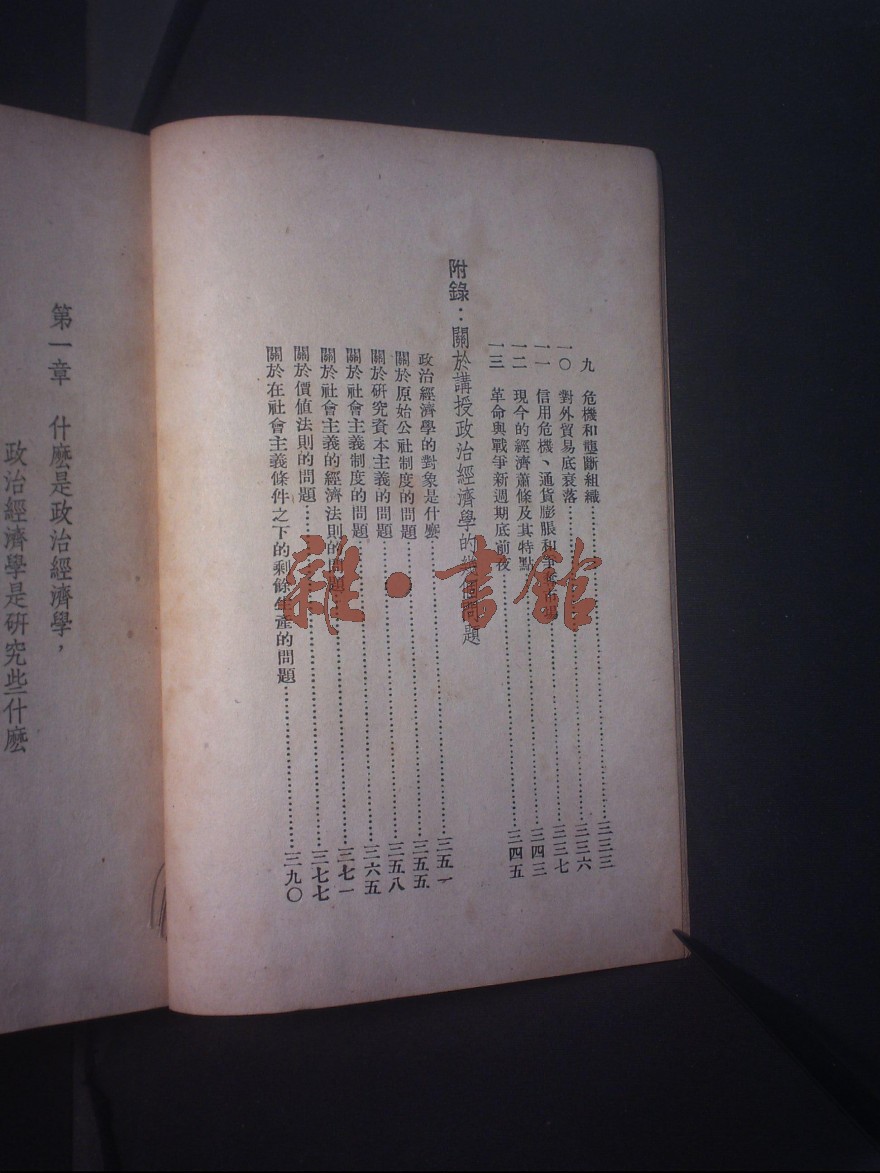 九 危機和壟斷組織……三三三
一〇 對外貿易底衰落……三三六
一一 信用危機、通貨膨脹和……三三七
一二 現今的經濟蕭條及其特點……三四三
一三 革命與戰爭新週期底前夜……三四五
附錄：關於講授政治經濟學的幾個問題
政治經濟學的對象是什麼……三五一
關於原始公社制度的問題……三五五
關於研究資本主義的問題……三五八
關於社會主義制度的問題……三六五
關於社會主義的經濟法則的問題……三七一
關於價值法則的問題……三七七
關於在社會主義條件之下的剩餘生產的問題……三九〇
第一章 什麼是政治經濟學，
政治經濟學是研究些什麼
雜·書館